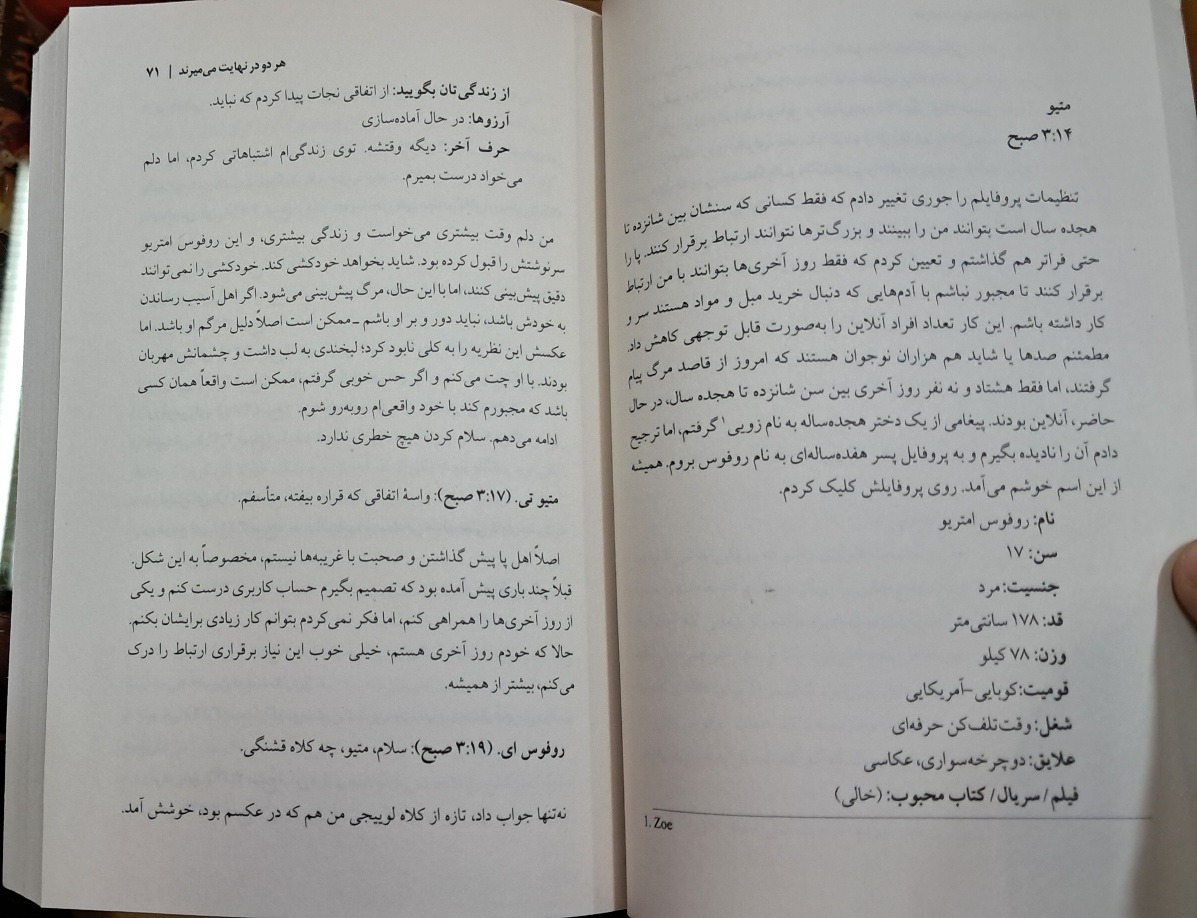 متیو
۳:۱۴ صبح
تنظیمات پروفایلم را جوری تغییر دادم که فقط کسانی که سنشان بین شانزده تا
هجده سال است بتوانند من را ببینند و بزرگ‌ترها نتوانند ارتباط برقرار کنند. پا را
حتی فراتر هم گذاشتم و تعیین کردم که فقط روز آخری‌ها بتوانند با من ارتباط
برقرار کنند تا مجبور نباشم با آدم‌هایی که دنبال خرید مبل و مواد هستند سر و
کار داشته باشم. این کار تعداد افراد آنلاین را به‌صورت قابل توجهی کاهش داد.
مطمئنم صدها یا شاید هم هزاران نوجوان هستند که امروز از قاصد مرگ پیام
گرفتند، اما فقط هشتاد و نه نفر روز آخری بین سن شانزده تا هجده سال، در حال
حاضر، آنلاین بودند. پیغامی از یک دختر هجده‌ساله به نام زویی۱ گرفتم، اما ترجیح
دادم آن را نادیده بگیرم و به پروفایل پسر هفده‌ساله‌ای به نام روفوس بروم. همیشه
از این اسم خوشم می‌آمد. روی پروفایلش کلیک کردم.
نام: روفوس امتریو
سن: ۱۷
جنسیت: مرد
قد: ۱۷۸ سانتی‌متر
وزن: ۷۸ کیلو
قومیت: کوبایی-آمریکایی
شغل: وقت‌تلف‌کن حرفه‌ای
علایق: دوچرخه‌سواری، عکاسی
فیلم / سریال / کتاب محبوب: (خالی)
1. Zoe
هر دو در نهایت می‌میرند | ۷۱
از زندگی‌تان بگویید: از اتفاقی نجات پیدا کردم که نباید.
آرزوها: در حال آماده‌سازی
حرف آخر: دیگه وقتشه. توی زندگی‌ام اشتباهاتی کردم، اما دلم
می‌خواد درست بمیرم.
من دلم وقت بیشتری می‌خواست و زندگی بیشتری، و این روفوس امتریو
سرنوشتش را قبول کرده بود. شاید بخواهد خودکشی کند. خودکشی را نمی‌توانند
دقیق پیش‌بینی کنند، اما با این حال، مرگ پیش‌بینی می‌شود. اگر اهل آسیب رساندن
به خودش باشد، نباید دور و بر او باشم ـ ممکن است اصلاً دلیل مرگم او باشد. اما
عکسش این نظریه را به کلی نابود کرد؛ لبخندی به لب داشت و چشمانش مهربان
بودند. با او چت می‌کنم و اگر حس خوبی گرفتم، ممکن است واقعاً همان کسی
باشد که مجبورم کند با خود واقعی‌ام روبه‌رو شوم.
ادامه می‌دهم. سلام کردن هیچ خطری ندارد.
متیو تی. (۳:۱۷ صبح): واسهٔ اتفاقی که قراره بیفته، متأسفم.
اصلاً اهل پا پیش گذاشتن و صحبت با غریبه‌ها نیستم، مخصوصاً به این شکل.
قبلاً چند باری پیش آمده بود که تصمیم بگیرم حساب کاربری درست کنم و یکی
از روز آخری‌ها را همراهی کنم، اما فکر نمی‌کردم بتوانم کار زیادی برایشان بکنم.
حالا که خودم روز آخری هستم، خیلی خوب این نیاز برقراری ارتباط را درک
می‌کنم، بیشتر از همیشه.
روفوس ای. (۳:۱۹ صبح): سلام، متیو، چه کلاه قشنگی.
نه‌تنها جواب داد، تازه از کلاه لوییجی من هم که در عکسم بود، خوشش آمد.